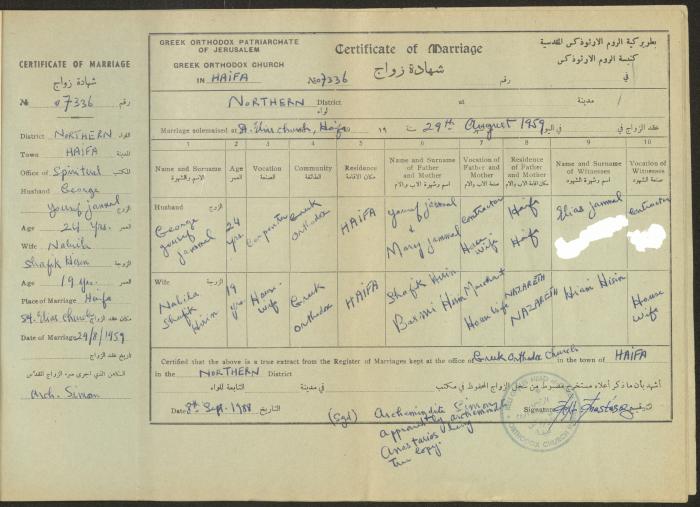 CERTIFICATE OF MARRIAGE
شهادة زواج
№ 07336 رقم
District NORTHERN اللواء
Town HAIFA المدينة
Office of Spiritual المكتب
Husband George
yousuf jammal الزوج
Age 24 yrs. العمر
Wife Nabiha
Shafik Hisin الزوجة
Age 19 yrs. العمر
Place of Marriage Haifa
St. Elias church مكان عقد الزواج
Date of Marriage 29/8/1959
تاريخ عقد الزواج
Arch. Simon
GREEK ORTHODOX PATRIARCHATE
OF JERUSALEM
GREEK ORTHODOX CHURCH
IN HAIFA
Certificate of Marriage
شهادة زواج
№ 07336 رقم
بطريركية الروم الارثوذكس المقدسية
كنيسة الروم الارثوذكس
في
NORTHERN District لواء at مدينة
Marriage solemnised at St. Elias church, Haifa 19 29th August 1959 في اليوم عقد الزواج في
1 2 3 4 5 6 7 8 9 10
Name and Surname
الاسم والشهرة
Age
العمر
Vocation
الصنعة
Community
الطائفة
Residence
مكان الاقامة
Name and Surname
of Father
and Mother
اسم وشهرة الاب والام
Vocation of
Father
and Mother
صنعة الاب والام
Residence of
Father
and Mother
مكان اقامة الاب والام
Name and Surname
of Witnesses
اسم وشهرة الشهود
Vocation of
Witnesses
صنعة الشهود
Husband الزوج
George
yousuf
jammal
24
yrs.
Carpenter
Greek
Orthodox
HAIFA
yousuf jammal
+
Mary jammal
Contractor
House
wife
Haifa
Haifa
Elias jammal
Contractor
Wife الزوجة
Nabiha
Shafik
Hisin
19
yrs.
House
wife
Greek
Orthodox
HAIFA
Shafik Hisin
Merchant
House wife
NAZARETH
NAZARETH
Hisin
House
wife
Certified that the above is a true extract from the Register of Marriages kept at the office of Greek Orthodox Church in the town of HAIFA
in the NORTHERN District
أشهد بأن ما ذكر أعلاه مستخرج مضبوط من سجل الزواج المحفوظ في مكتب
في مدينة التابعة للواء
Date 8th Sept. 1988 التاريخ
(Sgd) Archimandrite Simon
Anastasios
True copy.
Signature توقيع
ORTHODOX CHURCH